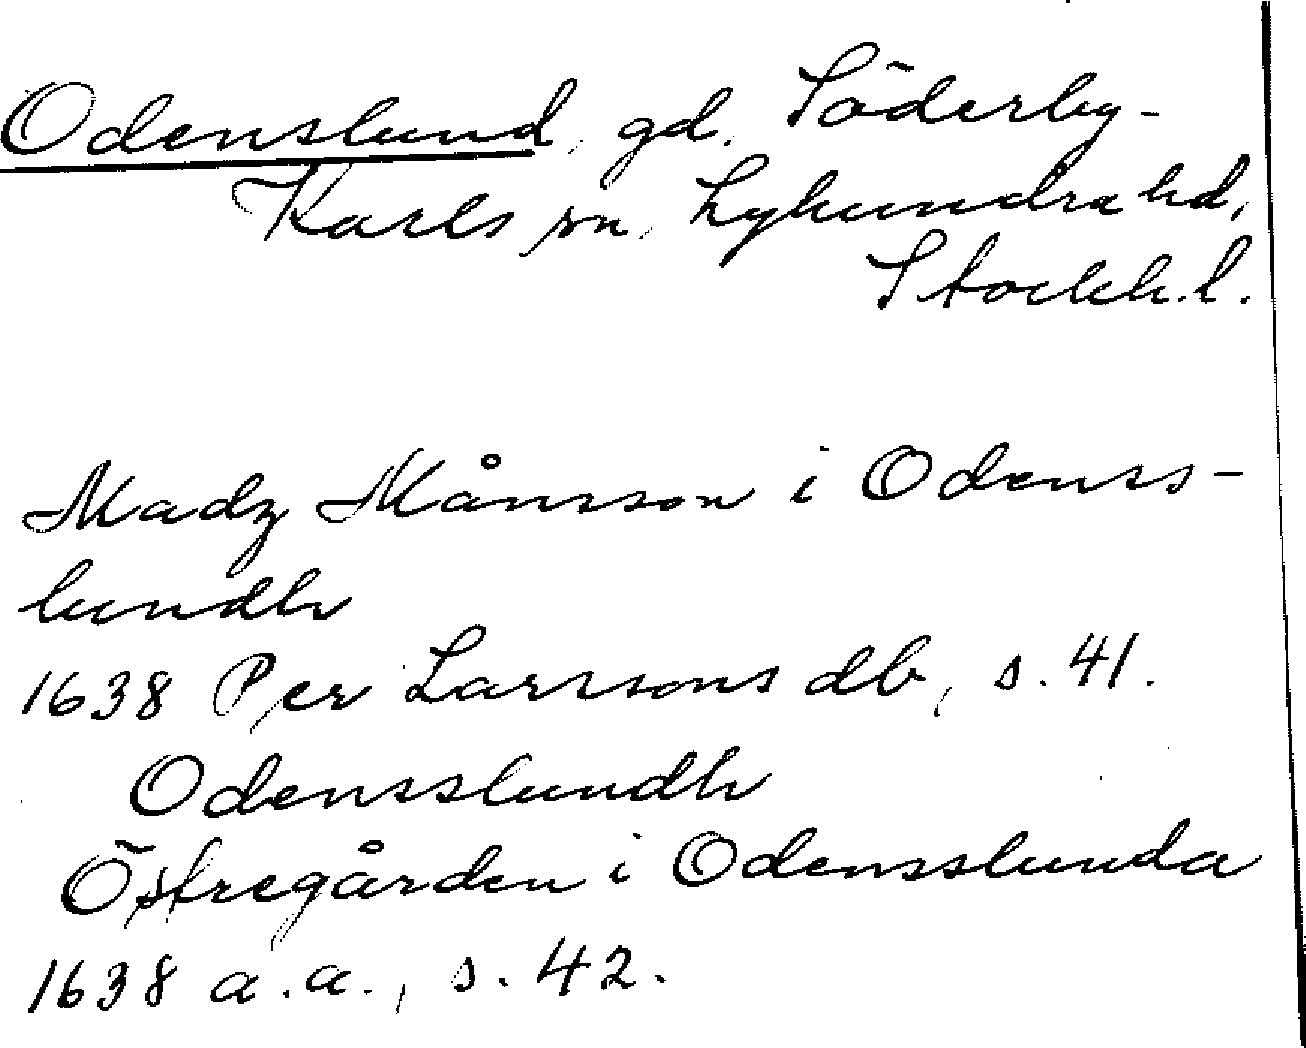 Odenslund, gd. Söderby-
Karls sn, Lyhundra hd,
Stockh. l.
Madz Månsson i Odenss-
lundh
1638 Per Larssons db, s. 41.
Odensslundh
Östregården i Odensslunda
1638 a.a., s. 42.